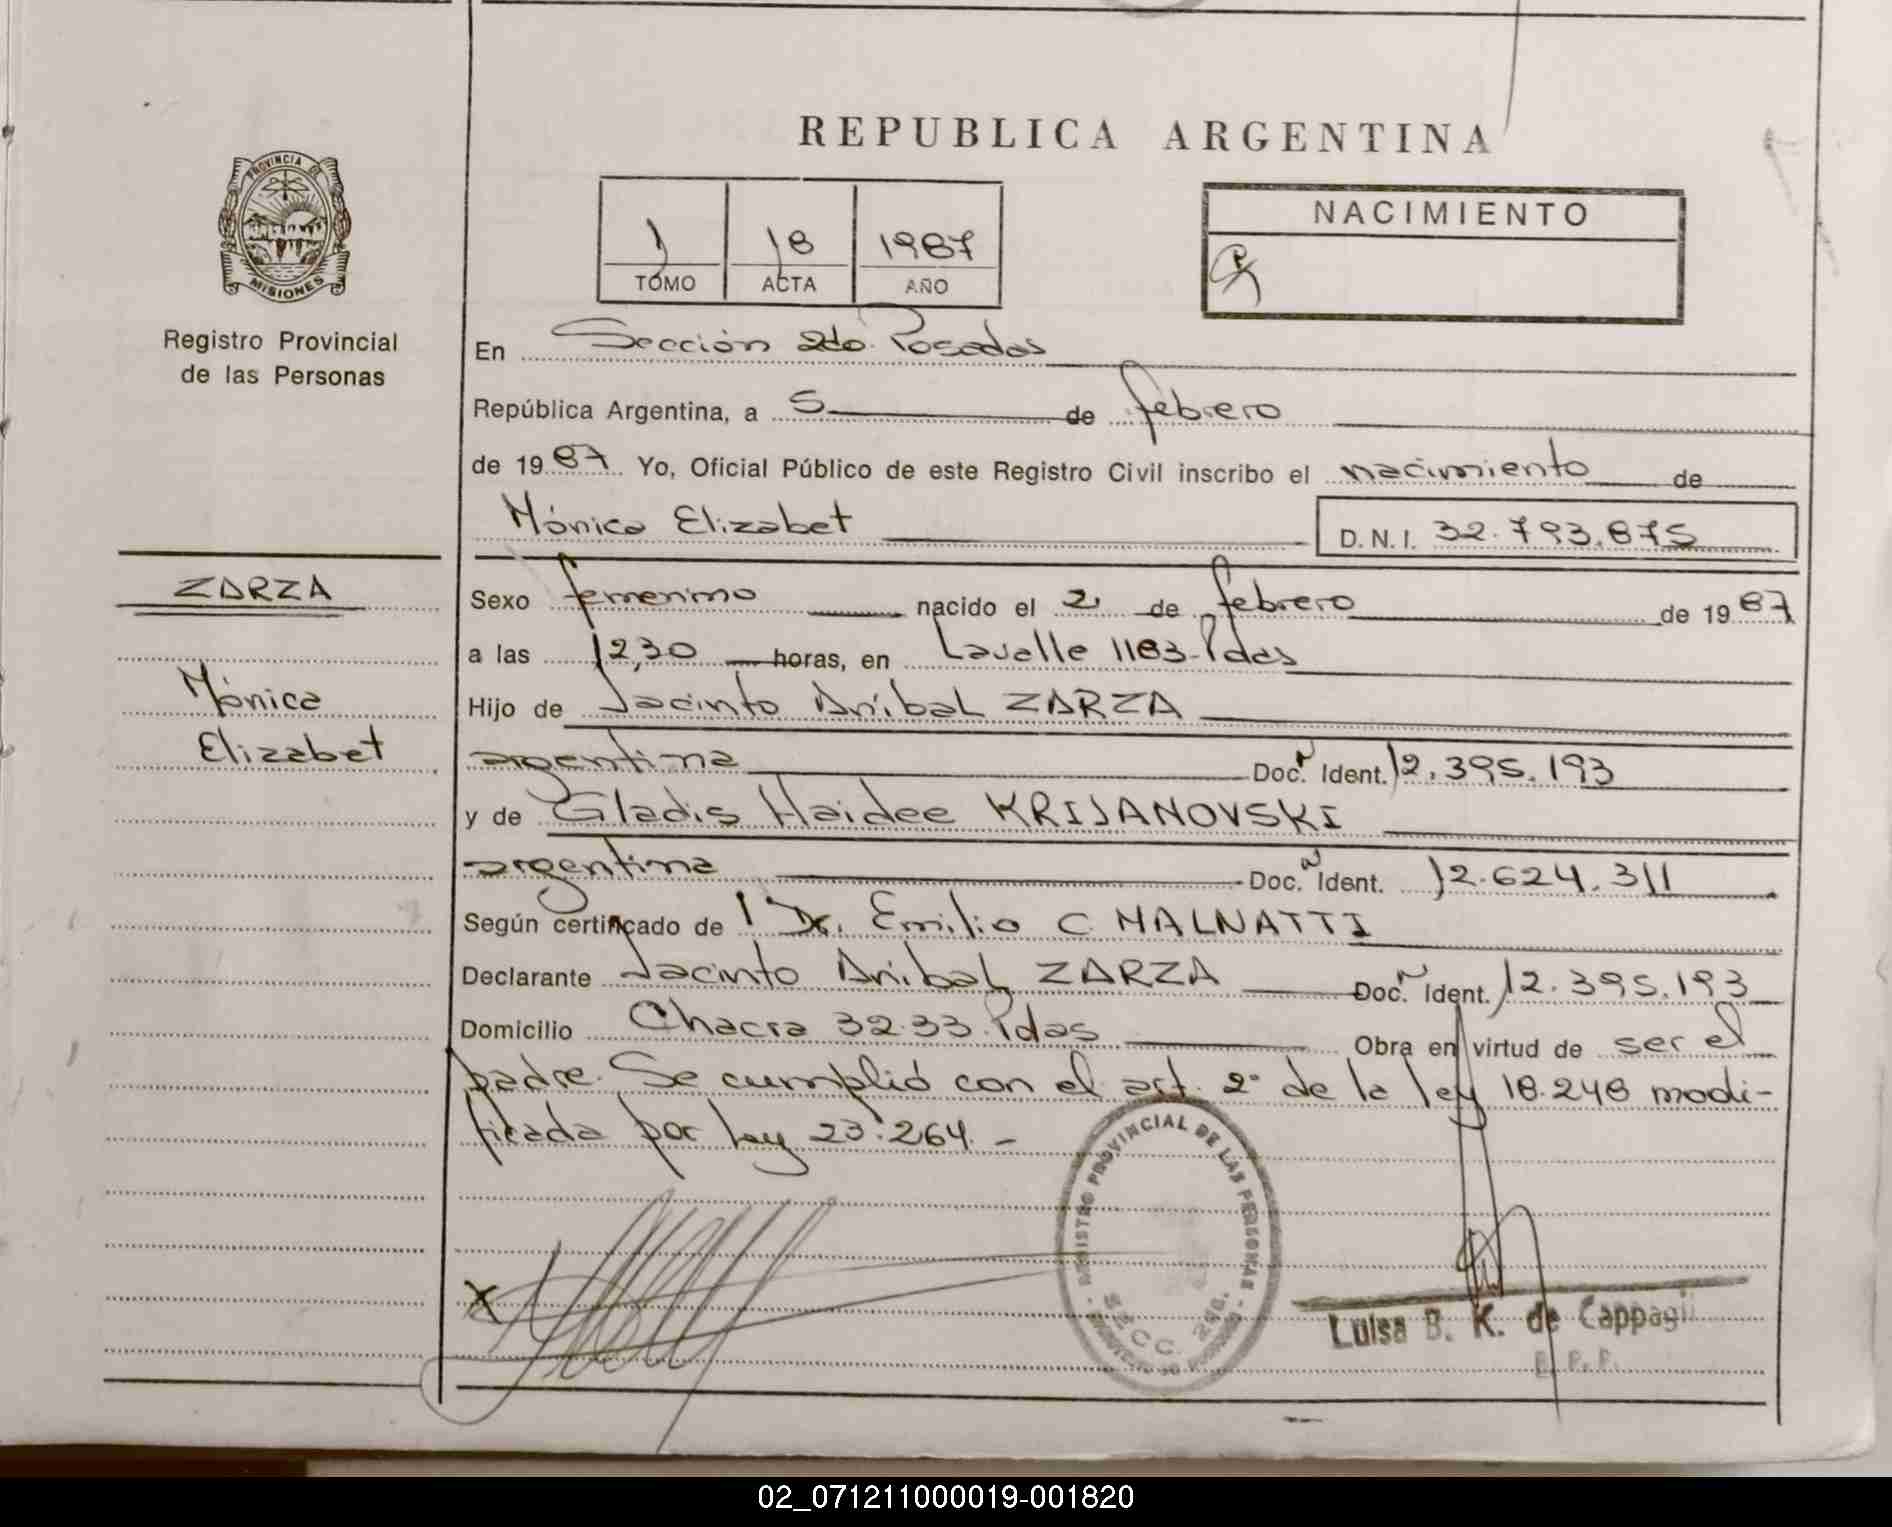 REPUBLICA ARGENTINA
PROVINCIA DE
MISIONES
Registro Provincial
de las Personas
1 18 1987
TOMO ACTA AÑO
NACIMIENTO
En Sección 2do. Posadas
República Argentina, a 5 de febrero
de 1987 Yo, Oficial Público de este Registro Civil inscribo el nacimiento de
Mónica Elizabet D.N.I. 32.793.875
ZARZA
Mónica
Elizabet
Sexo femenino nacido el 2 de febrero de 1987
a las 12,30 horas, en Lavalle 1183-Pdas
Hijo de Jacinto Aníbal ZARZA
argentina Doc. N Ident. 12.395.193
y de Gladis Haidee KRIJANOVSKI
argentina Doc. N Ident. 12.624.311
Según certificado de Dr. Emilio C MALNATTI
Declarante Jacinto Aníbal ZARZA Doc. N Ident. 12.395.193
Domicilio Chacra 32-33. Pdas Obra en virtud de ser el
padre. Se cumplió con el art. 2º de la ley 18.248 modi-
ficada por ley 23.264.-
X
REGISTRO PROVINCIAL DE LAS PERSONAS
SECC. 2da.
Luisa B. K. de
02_071211000019-001820